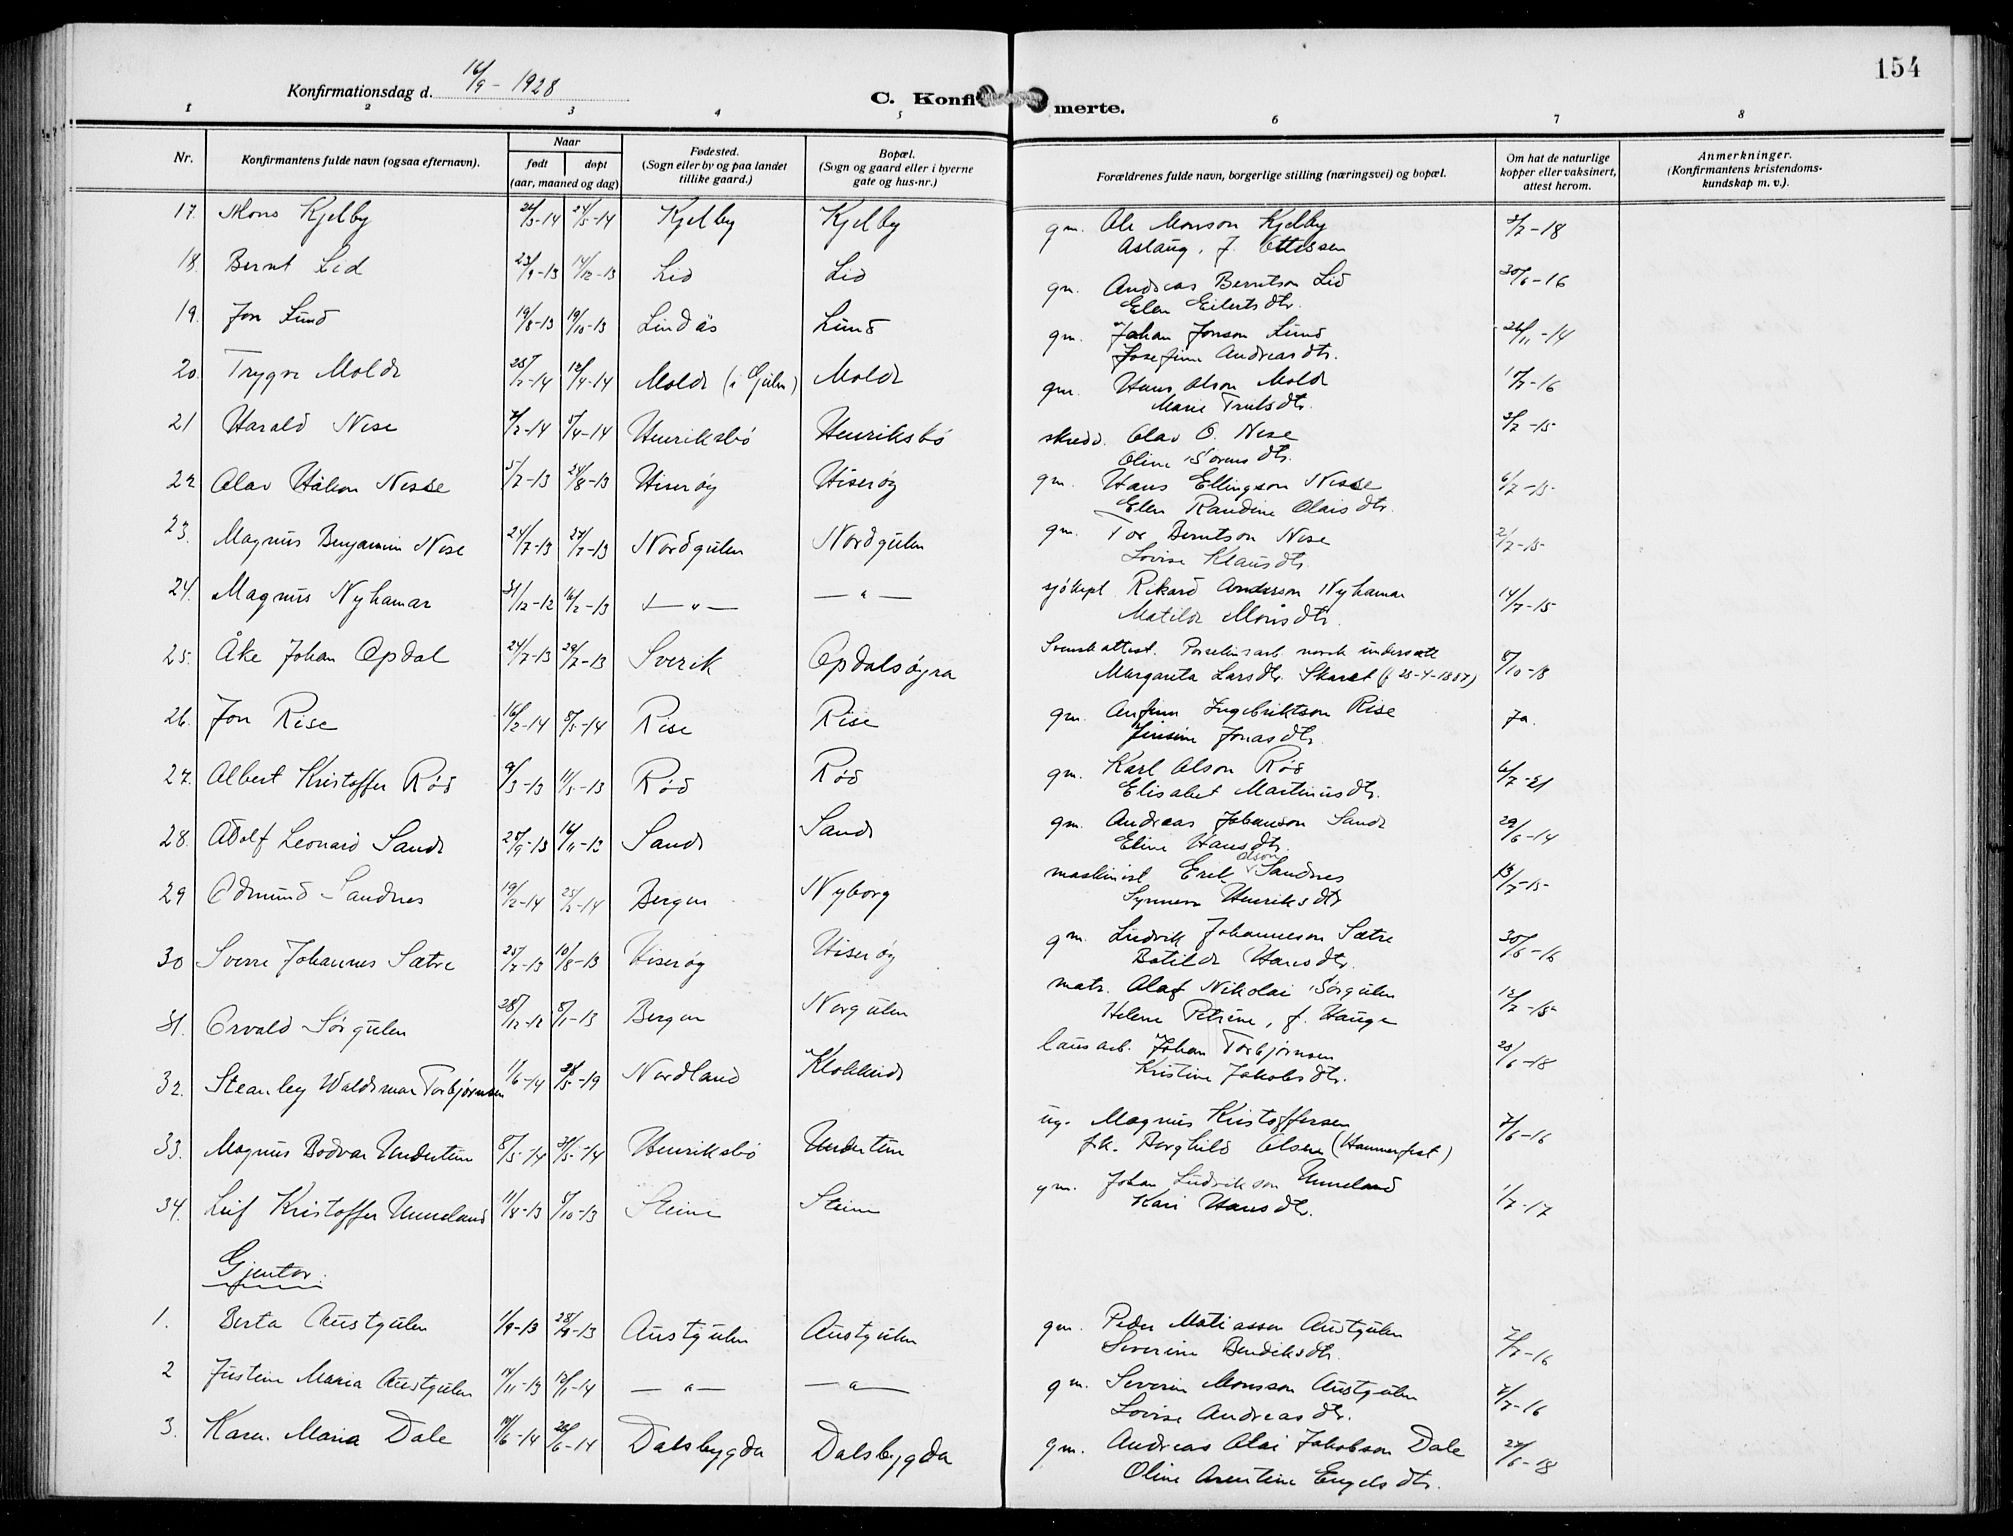 154
Konfirmationsdag d. 16/9 - 1928
C. Konfirmerte.
1 2 3 4 5 6 7 8
Nr. Konfirmantens fulde navn (ogsaa efternavn). Naar født døpt (aar, maaned og dag) Fødested. (Sogn eller by og paa landet tillike gaard.) Bopæl. (Sogn og gaard eller i byerne gate og hus-nr.) Forældrenes fulde navn, borgerlige stilling (næringsvei) og bopæl. Om hat de naturlige kopper eller vaksinert, attest herom. Anmerkninger. (Konfirmantens kristendoms-kundskap m. v.).
17. Mons Kjelby 24/5-14 Kjelby Kjelby gm. Ole Monson Kjelby
Aslaug, f. Ottessen
18. Bernt Lid 23/9-13 14/12-13 Lid Lid gm. Andreas Berntson Lid 30/6-16
Elen Eilertsdtr.
19. Jon Lund 19/8-13 19/10-13 Lindås Lund gm. Johan Jonson Lund 26/11-14
Josefine Andreasdtr.
20. Trygve Molde 12/4-14 Molde (i Gulen) Molde gm. Hans Olson Molde
Marie Trulsdtr.
21 Harald Nese 5/4-14 Henriksbø Henriksbø skredd. Olav O. Nese
Oline Sørensdtr.
22 Olav Håkon Nesse 5/7-13 24/8-13 Hiserøy Hiserøy gm. Hans Ellingson Nesse 6/7-15
Elen Randine Olaisdtr.
23. Magnus Benjamin Nese 24/7-13 27/7-13 Nordgulen Nordgulen gm. Tor Berntson Nese 2/7-15
Lovise Klausdtr.
24. Magnus Nyhamar 31/12-12 16/2-13 — " — — " — sjøkapt. Rikard Anderson Nyhamar 14/7-15
Matilde Monsdtr.
25. Åke Johan Opdal 24/7-13 29/7-13 Sverik Opdalsøyra Svensk attest. Porselinsarb. norsk undersått
Margareta Larsdtr. Skaret 8/10-18
26. Jon Rise 16/2-14 8/5-14 Rise Rise gm. Anfinn Ingebriktson Rise Ja.
Jensine Jonasdtr.
27. Albert Kristoffer Rød 9/3-13 11/5-13 Rød Rød gm. Karl Olson Rød 6/7-21
Elisabet Martinusdtr.
28. Adolf Leonard Sande 16/11-13 Sande Sande gm. Andreas Johanson Sande 29/6-14
Eline Hansdtr.
29 Odmund Sandnes 19/2-14 Bergen Nyborg maskinist Erik Olson Sandnes 13/7-15
Synneva Henriksdtr
30 Sverre Johannes Sætre 25/7-13 10/8-13 Hiserøy Hiserøy gm. Ludvik Johanneson Sætre 30/6-16
Botilde Hansdtr.
31. Orvald Sørgulen 28/12-12 8/1-13 Bergen Norgulen matr. Olaf Nikolai Sørgulen
Helene Petrine, f. Hauge
32. Steanley Waldemar Torbjørnsen 1/6-14 Nordland Klokkeide lausarb. Johan Torbjørnsen
Kristine Jakobsdtr.
33. Magnus Bodvar Undertun 8/5-14 31/5-14 Henriksbø Undertun ug. Magnus Kristoffersen 7/6-16
frk. Borghild Olsen (Hammerfest)
34. Leif Kristoffer Unneland 11/8-13 5/10-13 Steine Steine gm. Johan Ludvikson Unneland 1/7-17
Kari Hansdtr.
Gjentor.
1. Berta Austgulen 1/9-13 Austgulen Austgulen gm. Peder Matiassen Austgulen 2/7-16
Severine Bendiksdtr.
2 Justine Maria Austgulen 14/11-13 — " — — " — gm. Severin Monsson Austgulen
Lovise Andreasdtr.
3. Karen Maria Dale 10/6-14 28/6-14 Dalsbygda Dalsbygda gm. Andreas Olai Jakobson Dale 27/6-18
Oline Arentine Engelsdtr.